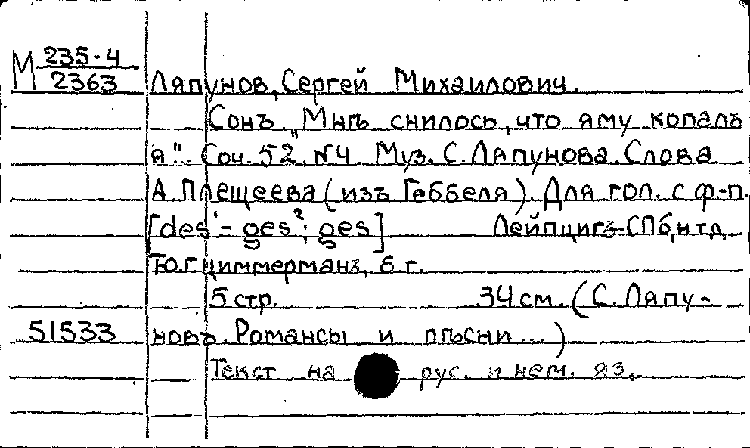 М 235-4
2363 Ляпунов, Сергей Михаилович.
Сонъ „Мнѣ снилось, что яму копалъ
я". Соч. 52. №4 Муз. С. Ляпунова. Слова
А. Плещеева (изъ Геббеля). Для гол. с ф-п.
[des' - ges²; ges] Лейпцигъ-СПб, н т д.
Ю. Г. Циммерманъ, б. г.
5 стр. 34 см. (С. Ляпу-
51533 новъ. Романсы и пѣсни...)
Текст на рус. и нем. яз.